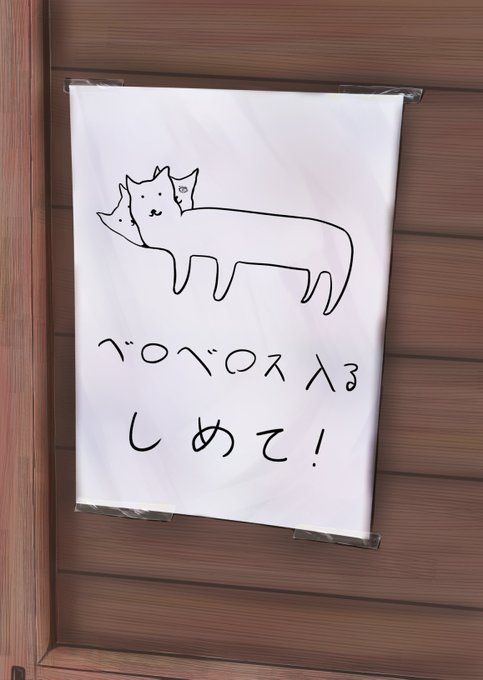 ベロベロス入る
しめて!